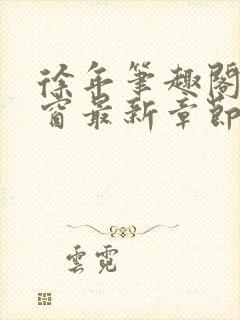 徐年筆趣閣
窗最新章節
雲霓